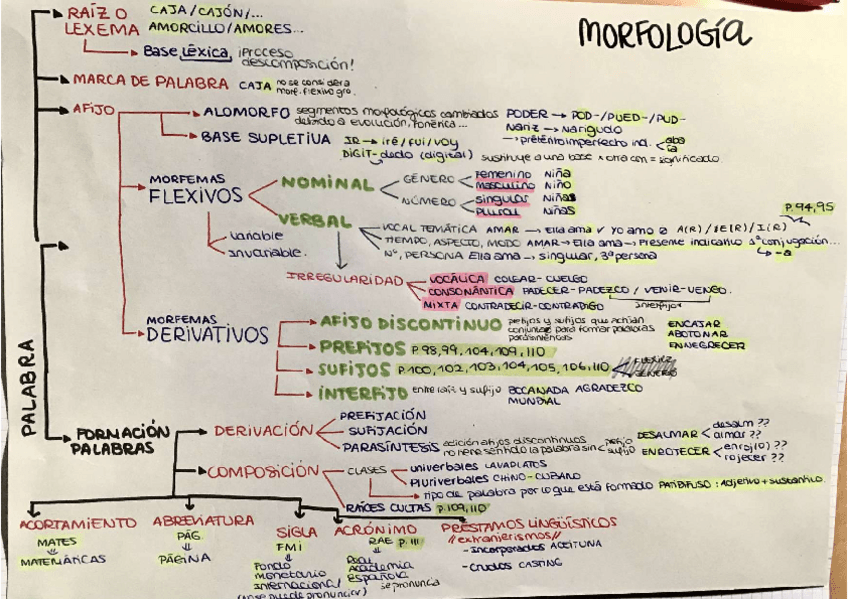 MORFOLOGÍA
RAÍZ O LEXEMA
CAJA/CAJÓN/...
AMORCILLO/AMORES...
Base léxica, ¡Proceso descomposición!
MARCA DE PALABRA CAJA no se considera morf. flexivo gro.
AFIJO
ALOMORFO segmentos morfológicos cambiados PODER → POD-/PUED-/PUD-
debido a evolución, fonética... Nariz → Narigudo
→ pretérito imperfecto ind. < aba
ía
BASE SUPLETIVA IR → iré/fui/voy
DIGIT-dedo (digital) sustituye a una base x otra con = significado.
MORFEMAS FLEXIVOS
NOMINAL
GÉNERO
Femenino Niña
masculino Niño
NÚMERO
singular Niñas
plural Niñas
P. 94,95
VERBAL
VOCAL TEMÁTICA AMAR → Ella ama Yo amo Ø A(R)/E(R)/I(R)
TIEMPO, ASPECTO, MODO AMAR → Ella ama → Presente indicativo 1ª conjugación...
→ -a
Nº, PERSONA Ella ama → singular, 3ª persona
variable
Invariable.
IRREGULARIDAD
VOCÁLICA COLGAR-CUELGO
CONSONÁNTICA PADECER-PADEZCO / VENIR-VENGO.
interfijos
MIXTA CONTRADECIR-CONTRADIGO
MORFEMAS DERIVATIVOS
AFIJO DISCONTINUO prefijos y sufijos que actúan conjuntos para formar palabras parasintéticas
ENCAJAR
ABOTONAR
ENNEGRECER
PREFIJOS P. 98,99,104,109,110
SUFIJOS P. 100,102,103,104,105,106,110
INTERFIJO entre raíz y sufijo BOCANADA AGRADEZCO
MUNDIAL
PALABRA
FORMACIÓN PALABRAS
DERIVACIÓN
PREFIJACIÓN
SUFIJACIÓN
PARASÍNTESIS adición afijos discontinuos
no tiene sentido la palabra sin < prefijo
sufijo
DESALMAR < desalm ??
almar ??
ENROJECER < enroj(o) ??
rojecer ??
COMPOSICIÓN
CLASES
univerbales LAVAPLATOS
Pluriverbales CHINO-CUBANO
tipo de palabra por lo que está formado PATIDIFUSO: Adjetivo + sustantivo.
RAÍCES CULTAS P. 109,110
ACORTAMIENTO
MATES
MATEMÁTICAS
ABREVIATURA
PÁG
PÁGINA
SIGLA
FMI
Fondo
Monetario
Internacional
(no se puede pronunciar)
ACRÓNIMO
RAE P. 111
Real
Academia
Española
se pronuncia
PRÉSTAMOS LINGÜÍSTICOS
//extranjerismos//
- incorporados ACEITUNA
- crudos CASTING